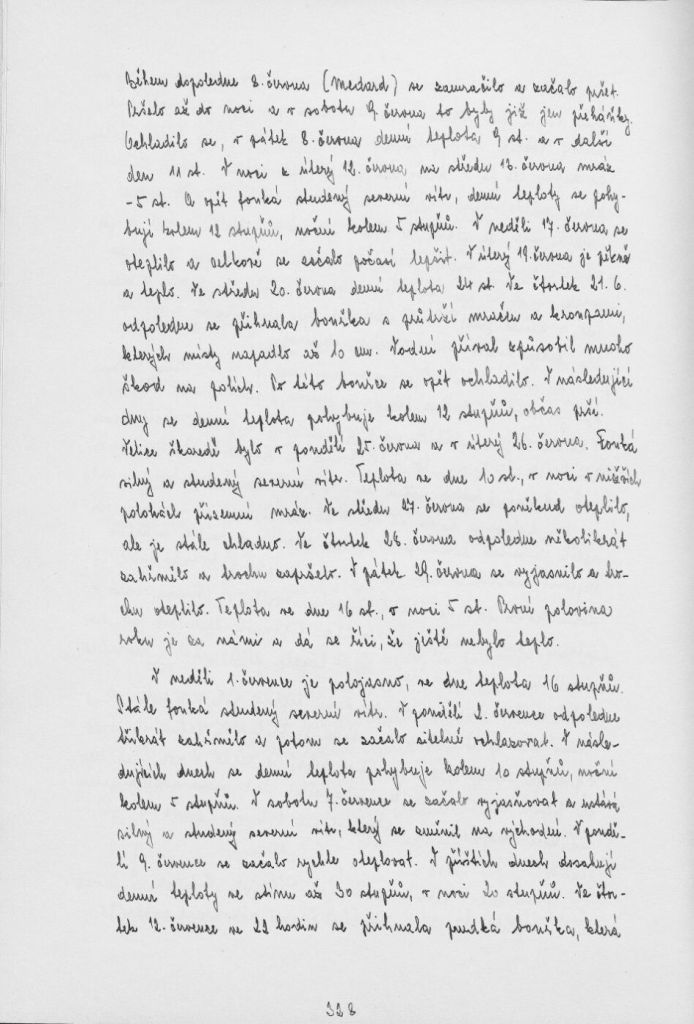 Během dopoledne 8. června (Medard) se zamračilo a začalo pršet.
Pršelo až do noci a v sobotu 9. června to byly již jen přeháňky.
Ochladilo se, v pátek 8. června denní teplota 9 st. a v další
den 11 st. V noci z úterý 12. června na středu 13. června mráz
-5 st. A opět fouká studený severní vítr, denní teploty se pohy-
bují kolem 12 stupňů, noční kolem 5 stupňů. V neděli 17. června se
oteplilo a celkově se začalo počasí lepšit. V úterý 19. června je pěkně
a teplo. Ve středu 20. června denní teplota 24 st. Ve čtvrtek 21. 6.
odpoledne se přihnala bouřka s průtrží mračen a kroupami,
kterých místy napadlo až 10 cm. Vodní příval způsobil mnoho
škod na polích. Po této bouřce se opět ochladilo. V následující
dny se denní teplota pohybuje kolem 12 stupňů, občas prší.
Velice škaredě bylo v pondělí 25. června a v úterý 26. června. Fouká
silný a studený severní vítr. Teplota ve dne 10 st., v noci v nižších
polohách přízemní mráz. Ve středu 27. června se poněkud oteplilo,
ale je stále chladno. Ve čtvrtek 28. června odpoledne několikrát
zahřmělo a trochu zapršelo. V pátek 29. června se vyjasnilo a tro-
chu oteplilo. Teplota ve dne 16 st., v noci 5 st. První polovina
roku je za námi a dá se říci, že ještě nebylo teplo.
V neděli 1. července je polojasno, ve dne teplota 16 stupňů.
Stále fouká studený severní vítr. V pondělí 2. července odpoledne
třikrát zahřmělo a potom se začalo citelně ochlazovat. V násle-
dujících dnech se denní teplota pohybuje kolem 10 stupňů, noční
kolem 5 stupňů. V sobotu 7. července se začalo vyjasňovat a ustává
silný a studený severní vítr, který se změnil na východní. V pondě-
lí 9. července se začalo rychle oteplovat. V příštích dnech dosahují
denní teploty ve stínu až 30 stupňů, v noci 20 stupňů. Ve čtvr-
tek 12. července ve 22 hodin se přihnala prudká bouřka, která
328